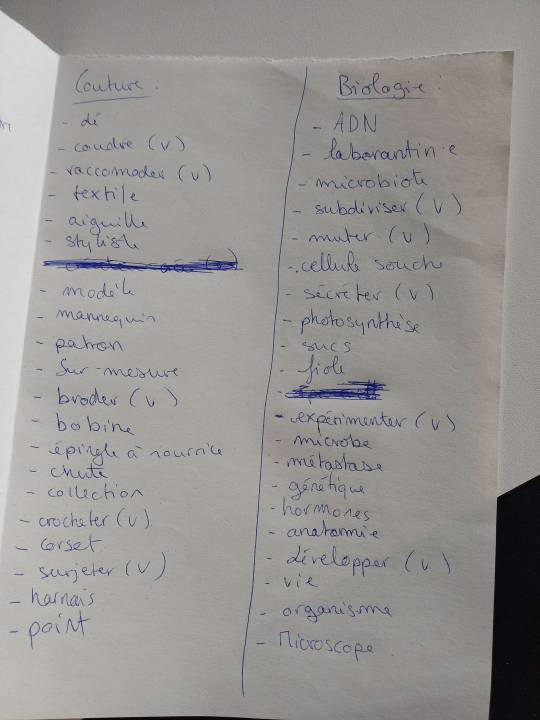 Couture :
- dé
- coudre (v)
- raccomoder (v)
- textile
- aiguille
- styliste
- modèle
- mannequin
- patron
- Sur-mesure
- broder (v)
- bobine
- épingle à nourrice
- chute
- collection
- crocheter (v)
- corset
- surjeter (v)
- harnais
- point
Biologie :
- ADN
- laborantin·e
- microbiote
- subdiviser (v)
- muter (v)
- cellule souche
- sécréter (v)
- photosynthèse
- sucs
- fiole
- expérimenter (v)
- microbe
- métastase
- génétique
- hormones
- anatomie
- développer (v)
- vie
- organisme
- Microscope